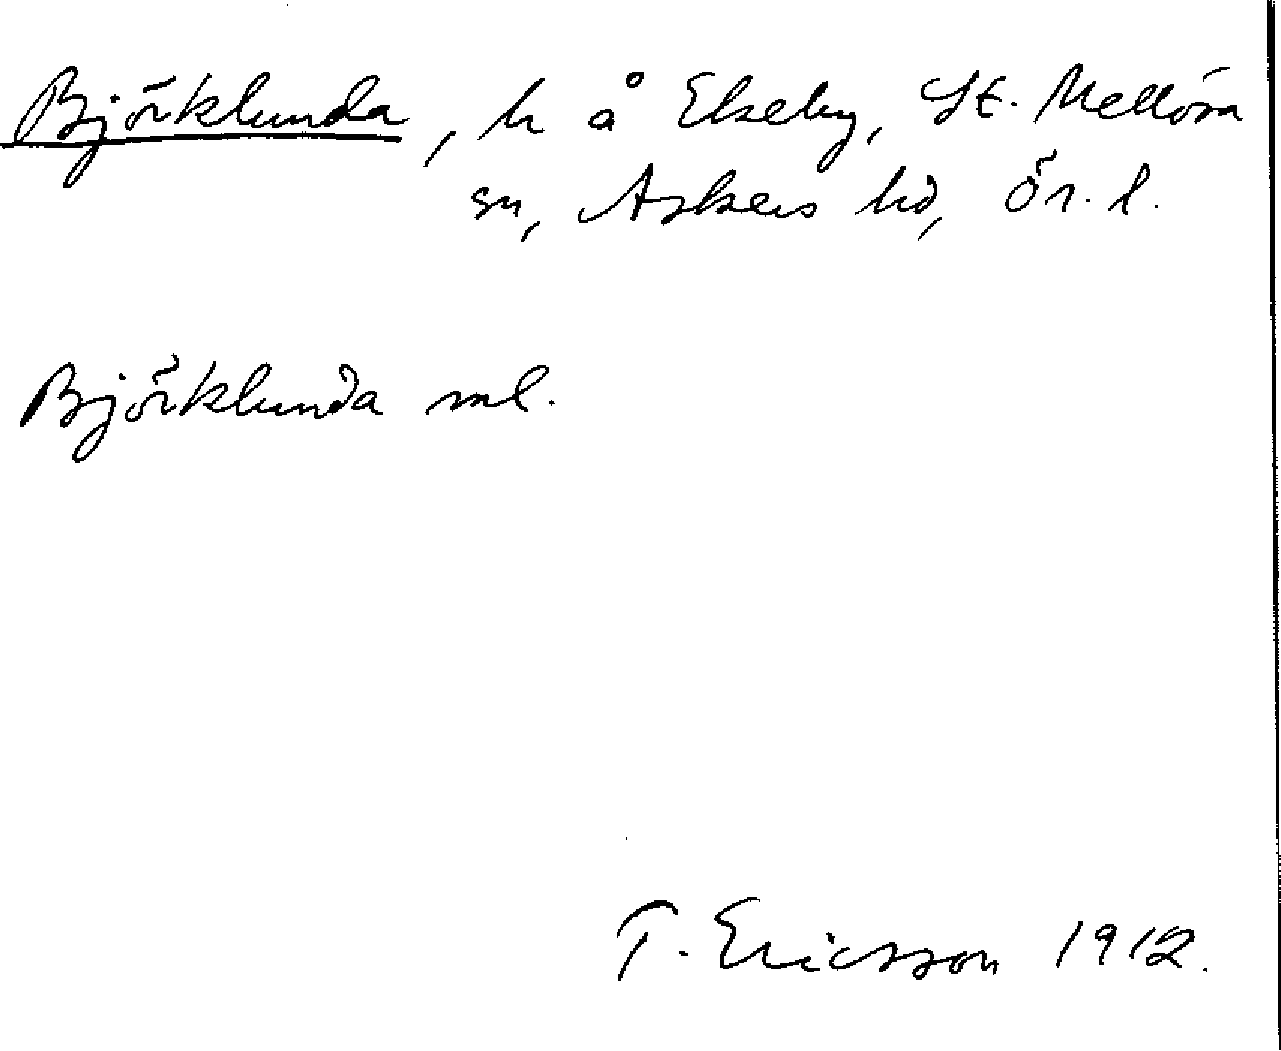 Björklunda, h å Ekeby, St. Mellösa
sn, Askers hd, Ör. l.
Björklunda ml.
T. Ericsson 1912.